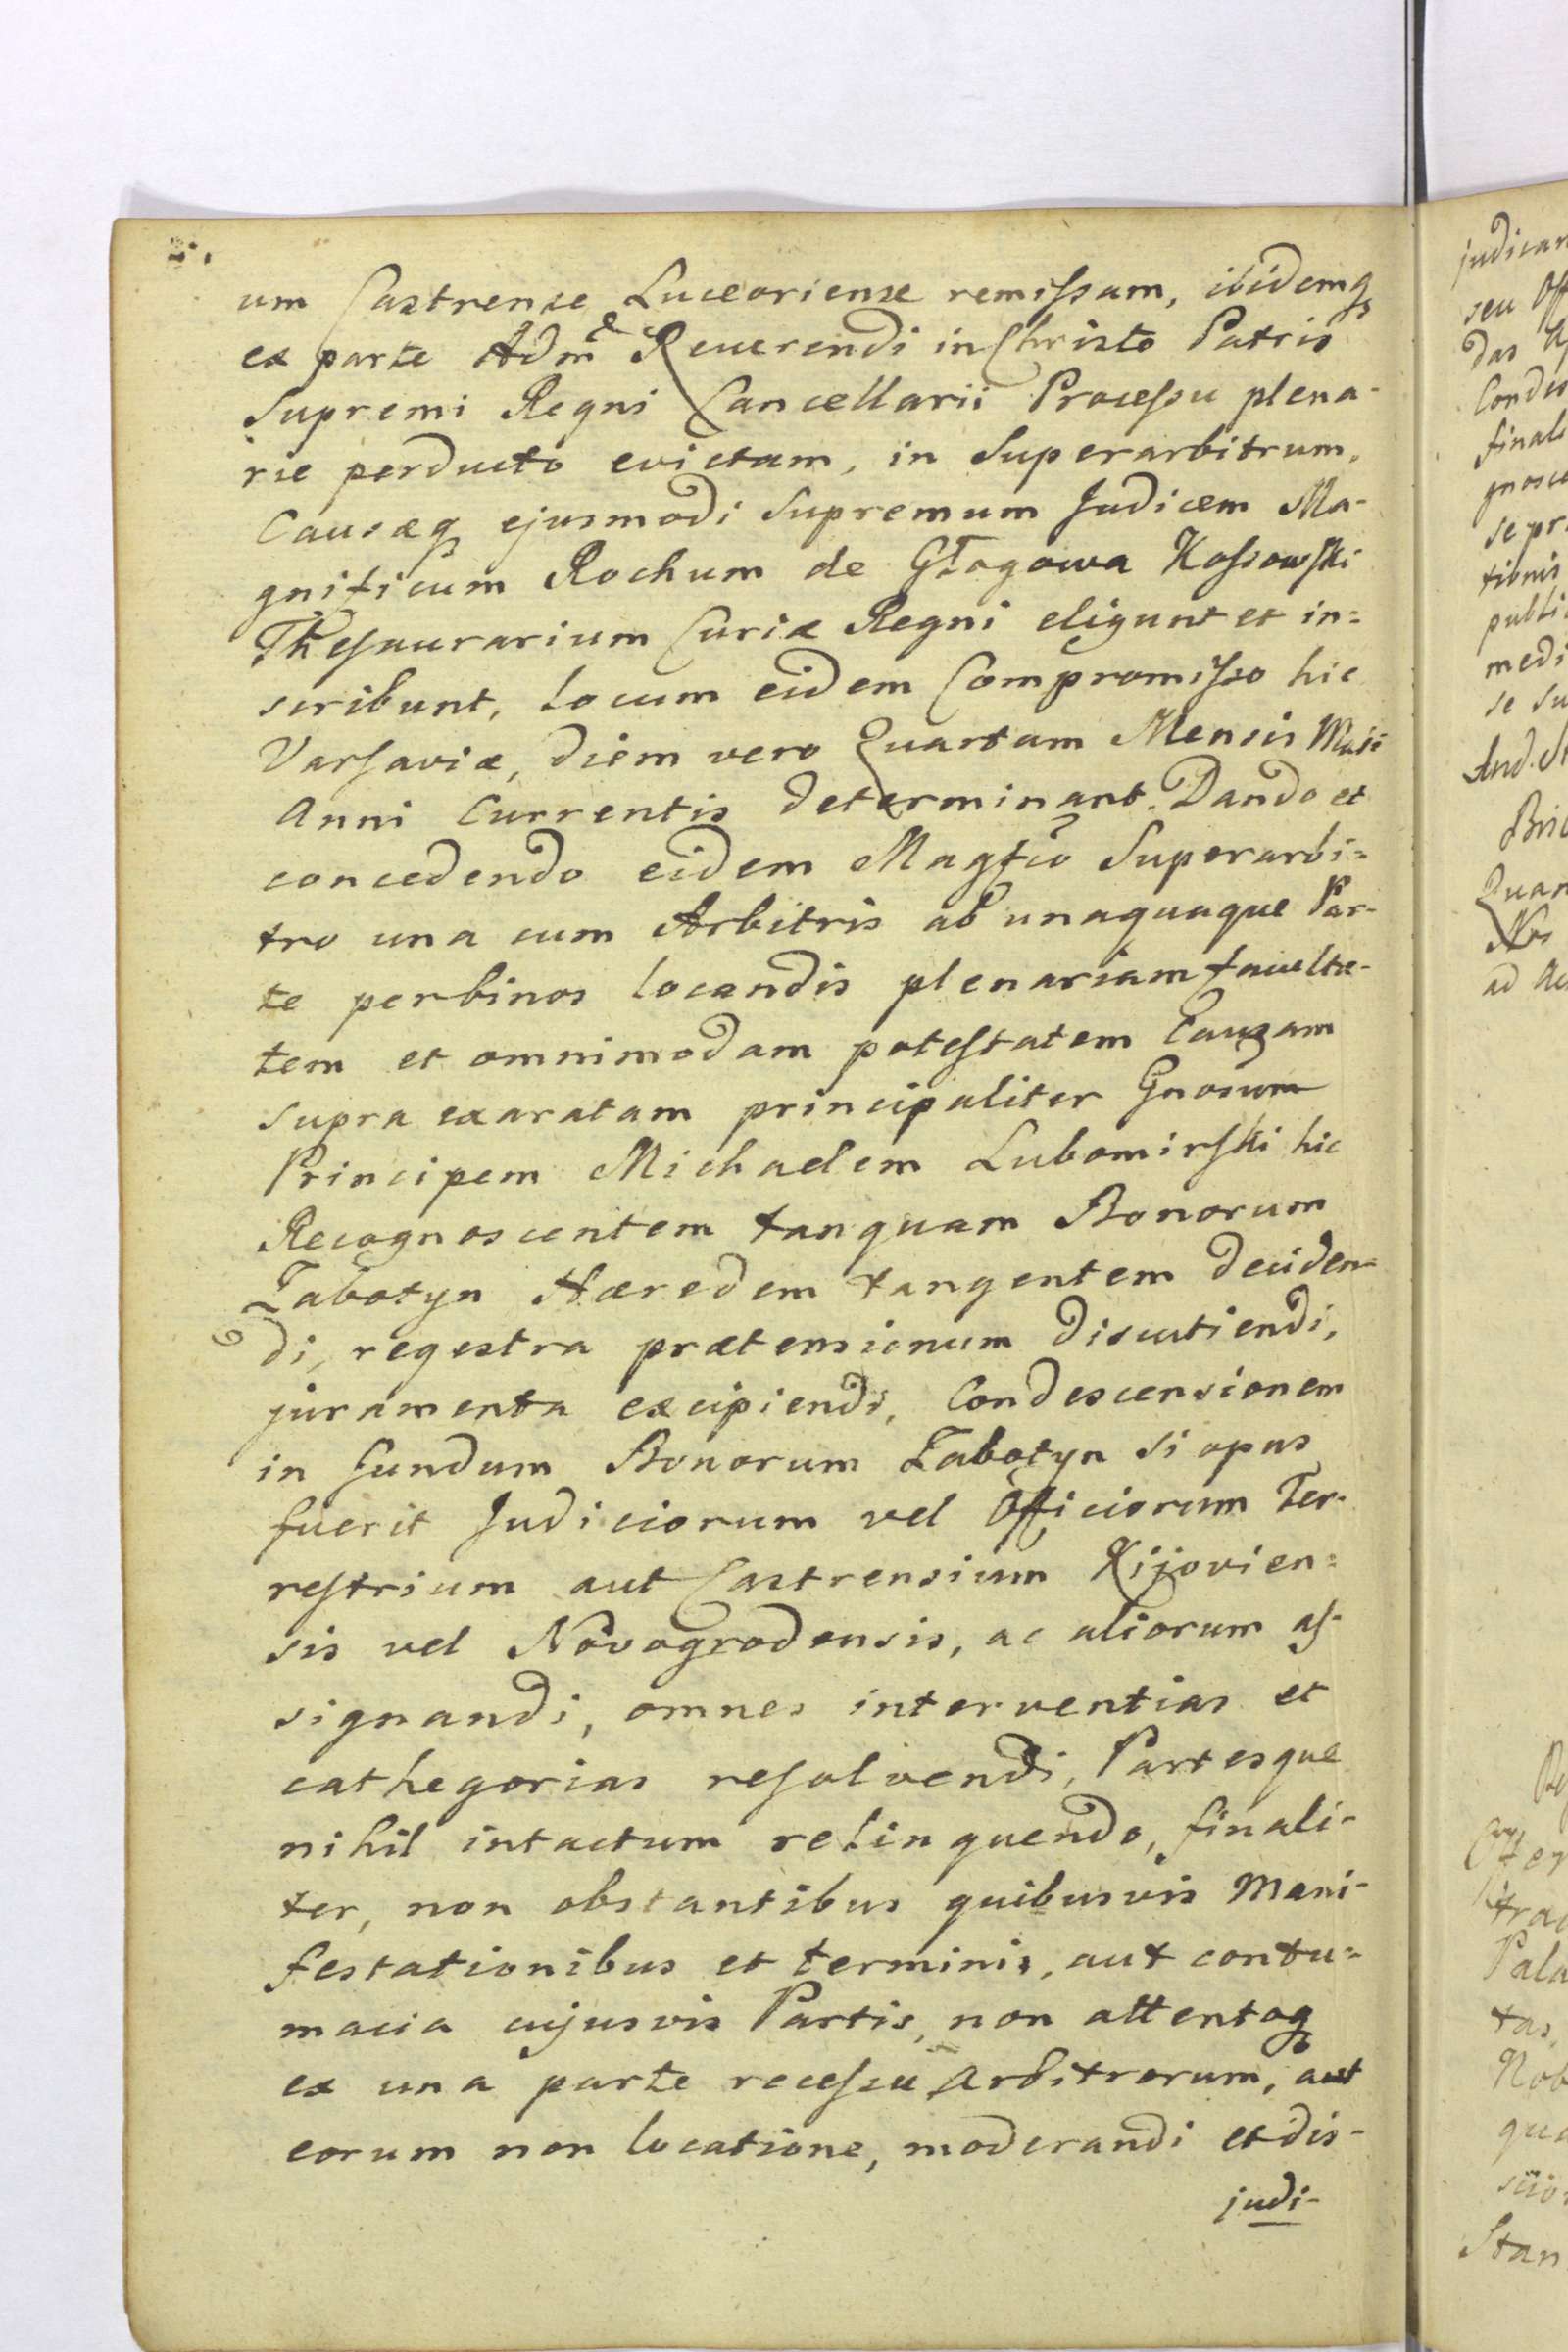 2.
um Castrense Luceoriense remissam, ibidemq
ex parte Adm̃ Reverendi in Christo Patris
Supremi Regni Cancellarii Processu plena-
rie perducto evictam, in Superarbitrum,
Causæq ejusmodi Supremum Judicem Ma-
gnificum Rochum de Głogowa Kossowski
Thesaurarium Curiæ Regni eligunt et in=
scribunt, locum eidem Compromisso hic
Varsaviæ, diem vero Quartam Mensis Maii
Anni Currentis determinant. Dando et
concedendo eidem Magfco Superarbi=
tro una cum Arbitris ab unaquaque Par-
te per binos locandis plenariam faculta-
tem et omnimodam potestatem Causam
supra exaratam principaliter Gnosum
Principem Michaelem Lubomirski hic
Recognoscentem tanquam Bonorum
Żabotyn Hæredem tangentem deciden=
di, regestra prætensionum discutiendi,
juramenta excipiendi, Condescensionem
in fundum Bonorum Żabotyn si opus
fuerit Judiciorum vel Officiorum Ter-
restrium aut Castrensium Kijovien=
sis vel Novogrodensis, ac aliorum as-
signandi, omnes interventias et
cathegorias resolvendi, Partesque
nihil intactum relinquendo, finali-
ter, non obstantibus quibusvis Mani-
festationibus et terminis, aut contu=
macia cujusvis Partis, non attentoq
ex una parte recessu Arbitrorum, aut
eorum non locatione, moderandi et dis-
judi-
judican
seu Off
das
Condes
finali
gnosce
se pr
tionis
publi
medi
se su
And. St
Quan
Nos
ad Ac
Pala
tas,
Nob
qua
Stan